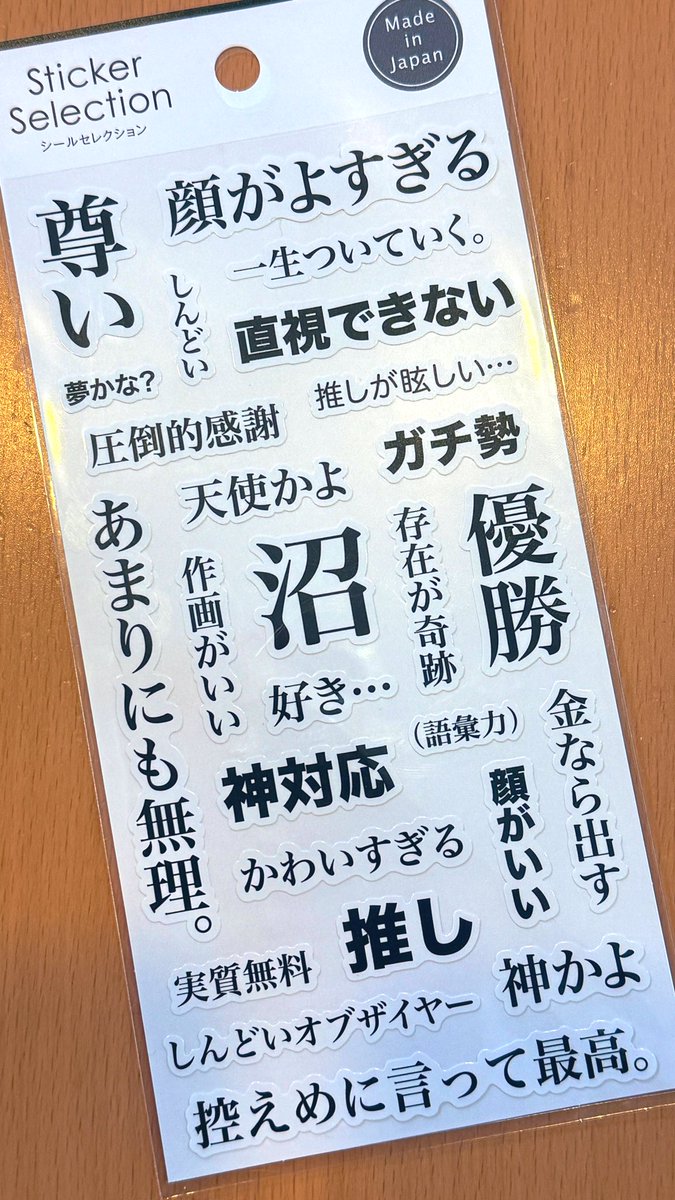 Sticker
Selection
シールセレクション
Made
in
Japan
尊い
顔がよすぎる
一生ついていく。
しんどい
直視できない
夢かな?
推しが眩しい…
圧倒的感謝
ガチ勢
天使かよ
あまりにも無理。
作画がいい
沼
存在が奇跡
優勝
好き…
(語彙力)
金なら出す
神対応
顔がいい
かわいすぎる
推し
実質無料
神かよ
しんどいオブザイヤー
控えめに言って最高。